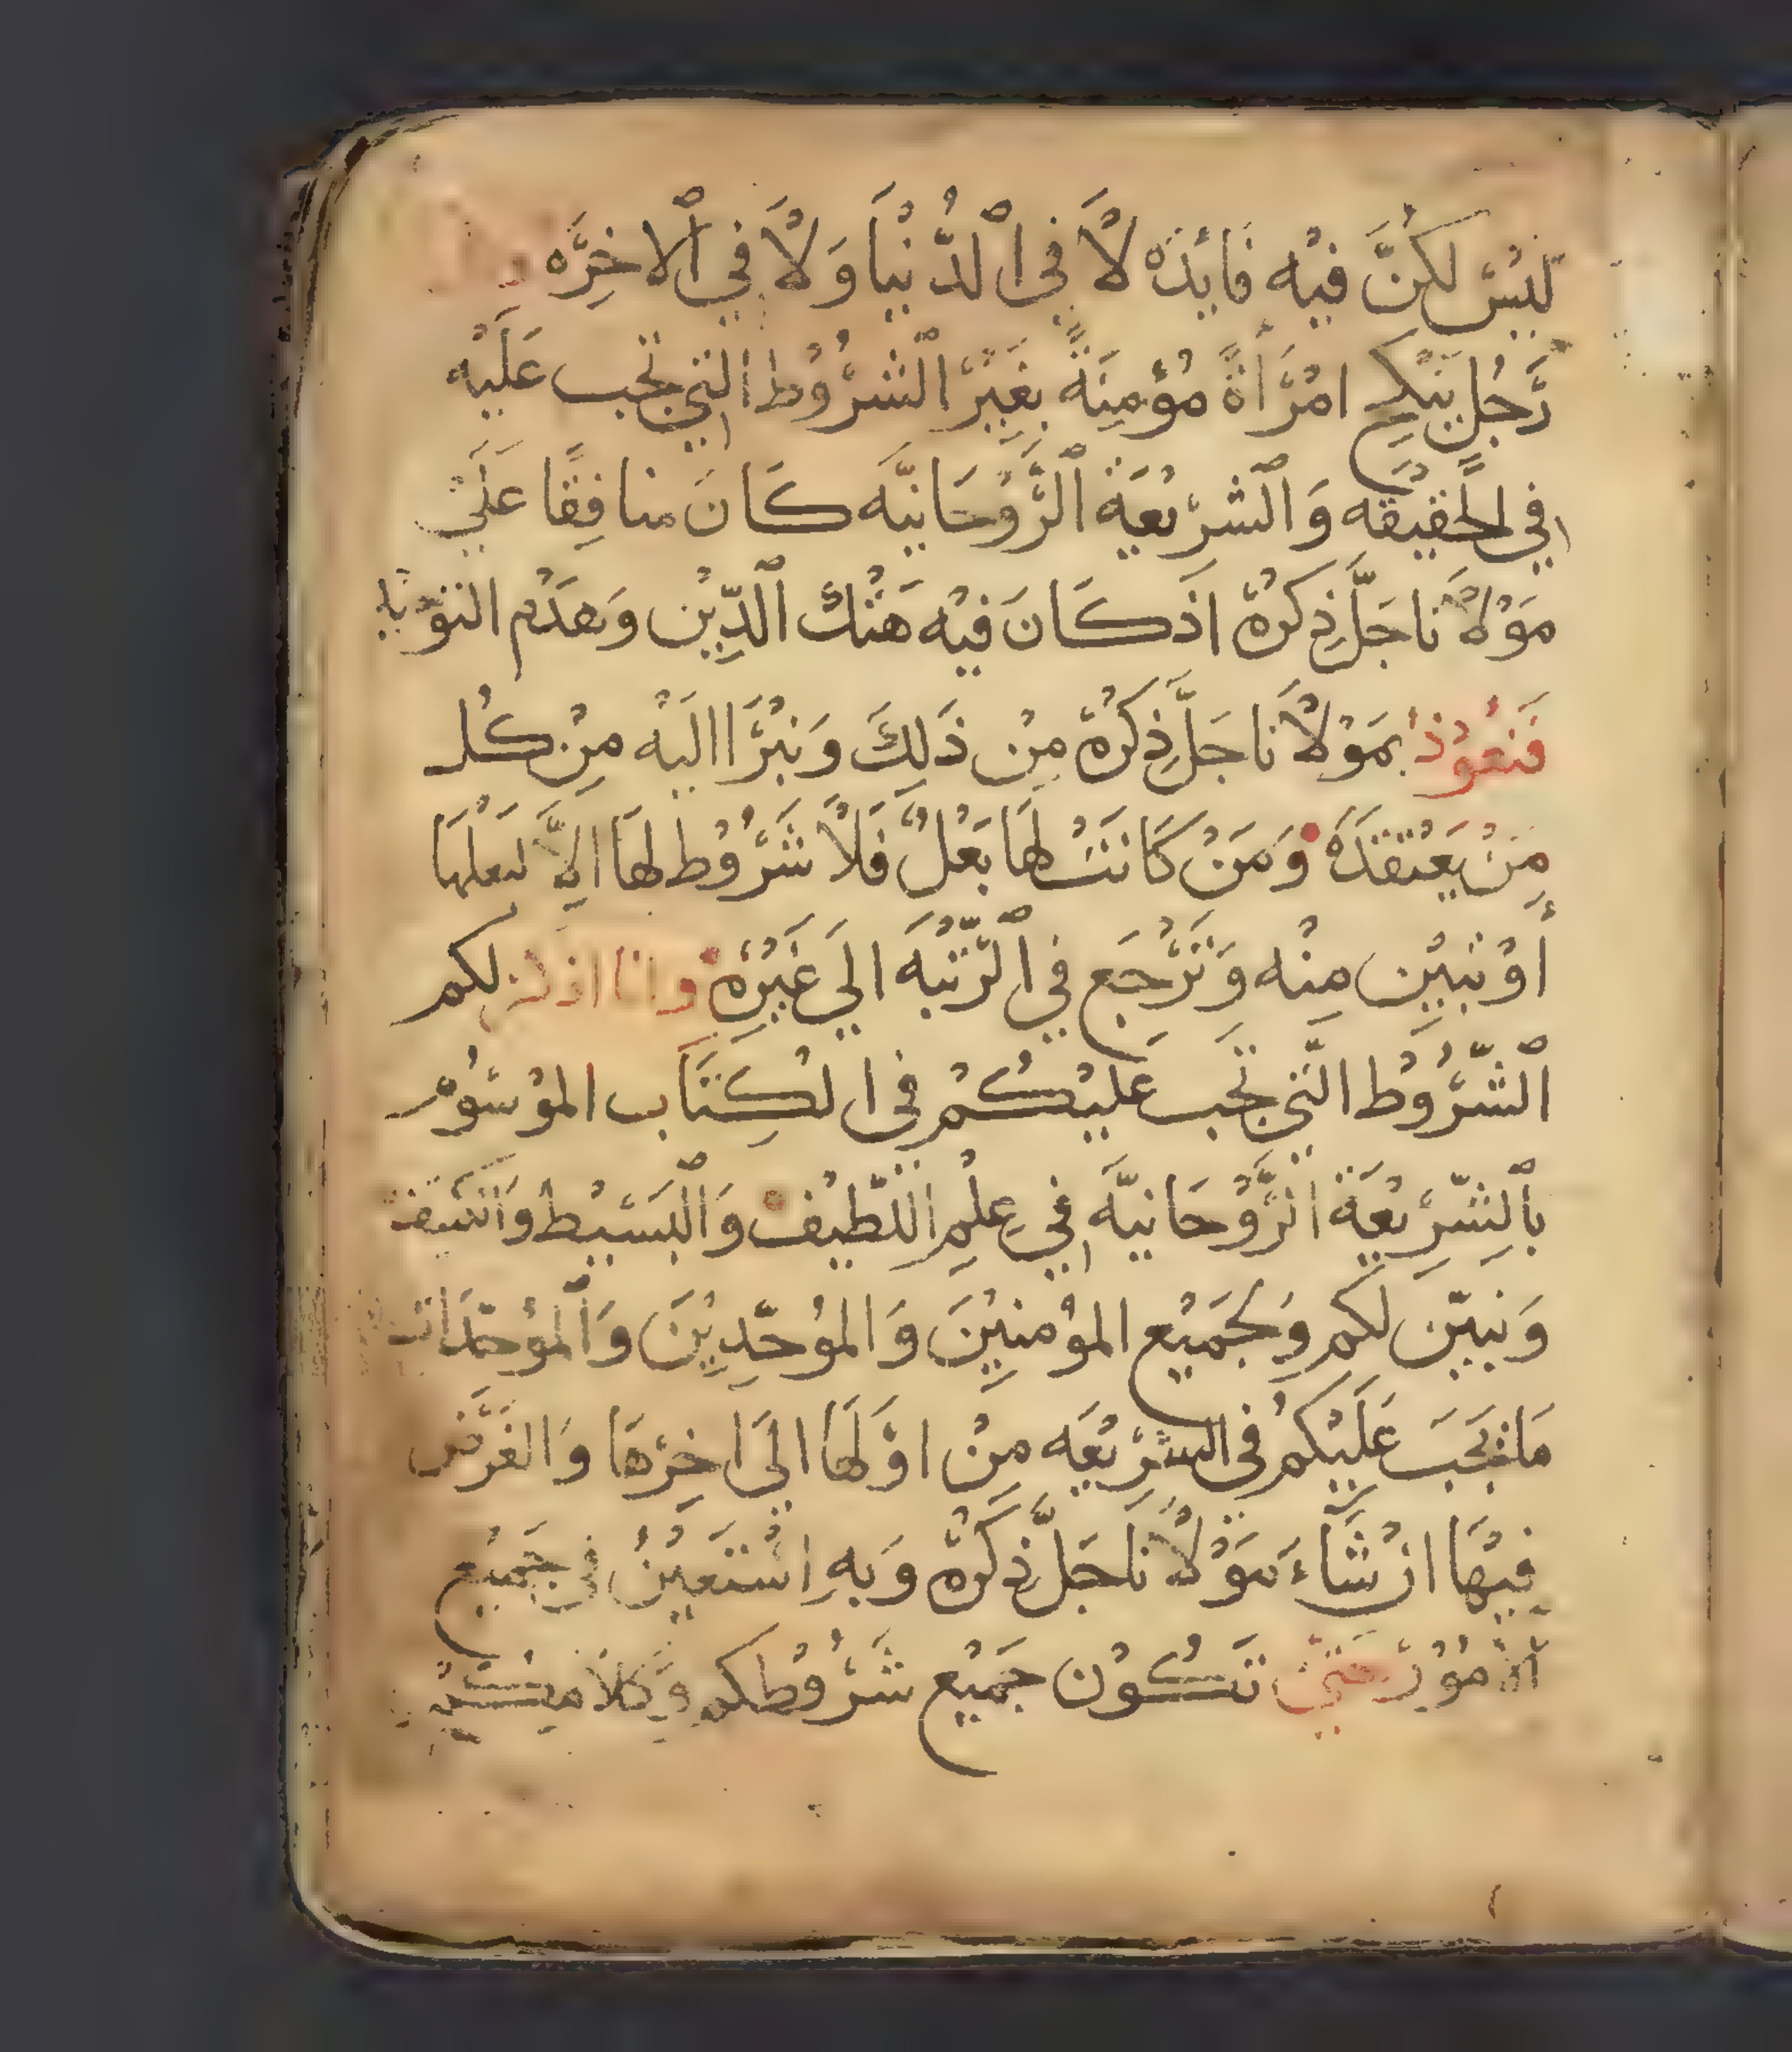 لَيْسَ لَكُنَّ فِيْه فَايِدَه لَا فِي الدُّنْيَا وَلَا فِي الاخِرَه
رَجُل يَنْكِح امْرَأةً مُؤْمِنَةً بِغَيْرِ الشُرُوْط التي تجب عَلَيْه
في الحَقِيْقَه وَالشَرِيْعَة الرُّوْحَانِيَّه كَانَ منافِقًا عَلَي
مَوْلَانا جَلَّ ذِكرُهُ اذ كَانَ فِيْه هَتْك الدِّيْن وَهَدْم التوْ
فَنَعُوْذُ بمَوْلَانا جَلَّ ذِكرُه مِنْ ذَلِكَ وَنبْرَا الَيْه مِنْ كُل
مَنْ يَعْتقدهُ وَمَنْ كَانَتْ لهَا بَعْلٌ فَلا شُرُوْط لهَا الاَّ لبَعْلهَا
أوْ تبِيْن مِنْه وَتَرْجَع فِي الرّتْبَه الَي غَيْرِه وانا اذكر لكم
الشُّرُوْط الَّتي تجب عَليْكُمْ فِي الْكِتَاب المَوْسُوْم
بِالشّرِيْعَة الرُّوْحَانيَّه فِي عِلْم اللّطِيْف وَالْبَسِيْط وَالكَثِيف
وَنبَيّن لكم وَلِجَمِيْع المؤْمِنِيْنَ وَالمُوَحِّدِيْنَ وَالْمُوَحِّدَات
مَا تجبَ عَلَيْكُمْ في الشرِيْعَه مِنْ اوّلهَا الَي اخِرْهَا وَالفَرْض
فِيْهَا ان شَاءَ مَوْلَانَا جَلَّ ذِكرُه وَبِهِ اسْتَعِيْنُ في جَمِيْع
الامُوْر حَتي تَكُوْن جَمِيْع شُرُوْطكم وَكلامـ